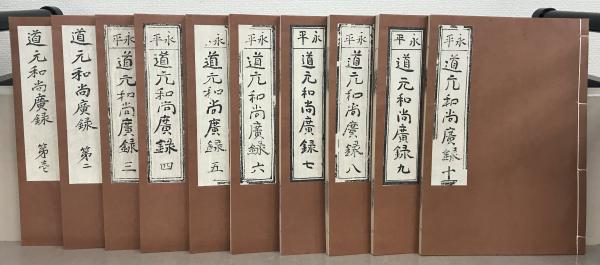 道元和尚廣録 第壱
道元和尚廣録 第二
永平
道元和尚廣録 三
永平
道元和尚廣録 四
永
道元和尚廣録 五
永平
道元和尚廣録 六
永平
道元和尚廣録 七
永平
道元和尚廣録 八
永平
道元和尚廣録 九
永平
道元和尚廣録 十